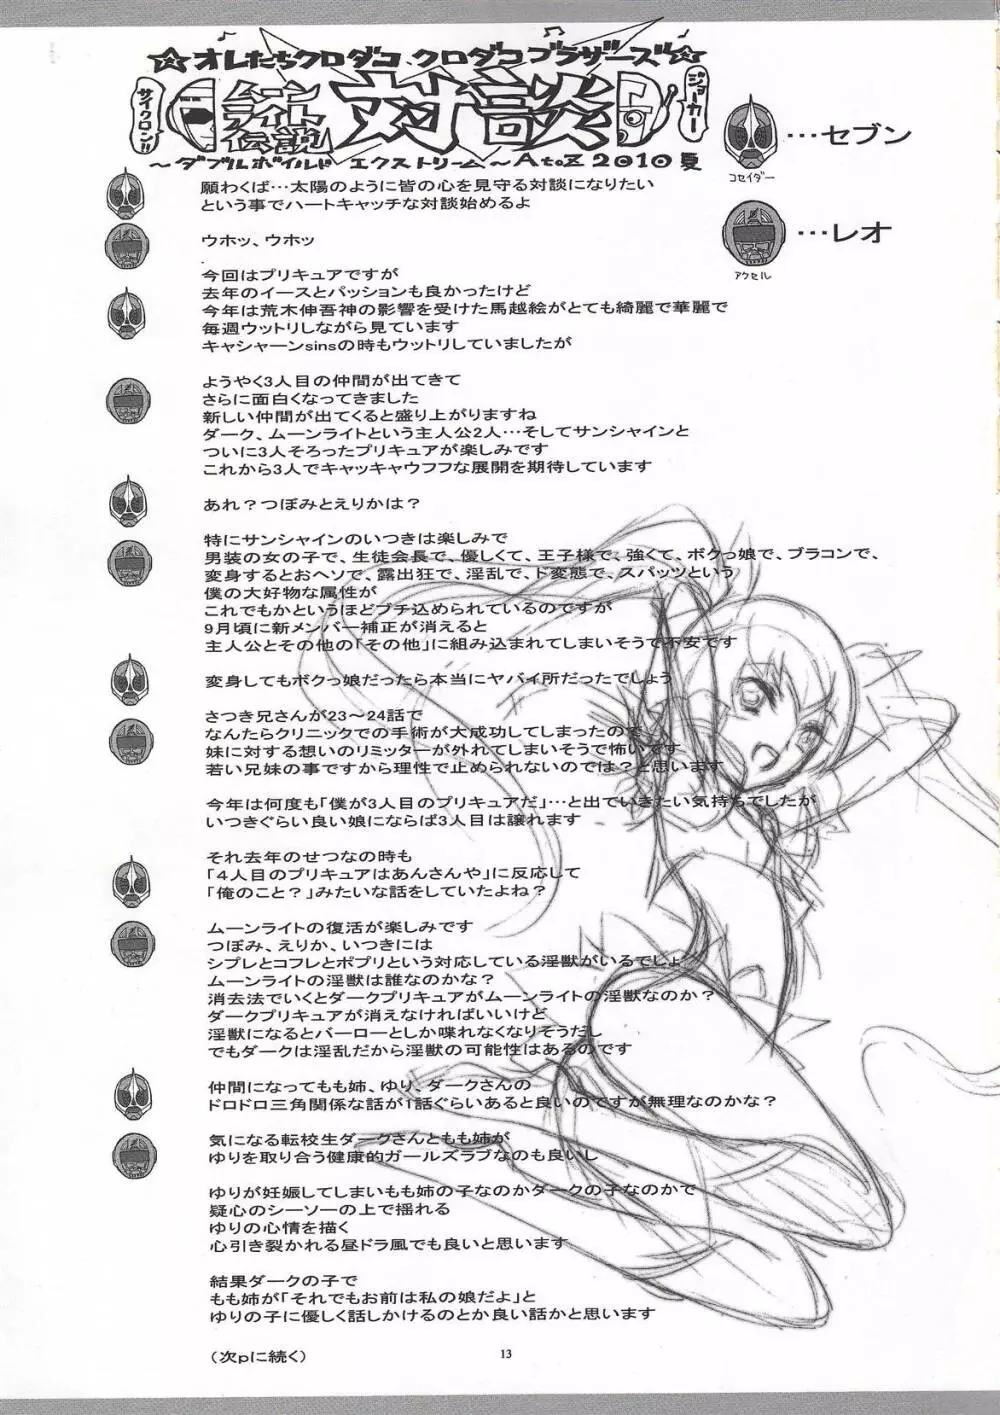 ☆オレたちクロダコ、クロダコブラザーズ☆
サイクロン!!
ジョーカー
ムーンライト伝説 対談
～ダブルボイルド エクストリーム～AtoZ 2010夏
…セブン
コセイダー
…レオ
アクセル
願わくば…太陽のように皆の心を見守る対談になりたい
という事でハートキャッチな対談始めるよ
ウホッ、ウホッ
.
今回はプリキュアですが
去年のイースとパッションも良かったけど
今年は荒木伸吾神の影響を受けた馬越絵がとても綺麗で華麗で
毎週ウットリしながら見ています
キャシャーンsinsの時もウットリしていましたが
ようやく3人目の仲間が出てきて
さらに面白くなってきました
新しい仲間が出てくると盛り上がりますね
ダーク、ムーンライトという主人公2人…そしてサンシャインと
ついに3人そろったプリキュアが楽しみです
これから3人でキャッキャウフフな展開を期待しています
あれ？つぼみとえりかは？
特にサンシャインのいつきは楽しみで
男装の女の子で、生徒会長で、優しくて、王子様で、強くて、ボクっ娘で、ブラコンで、
変身するとおヘソで、露出狂で、淫乱で、ド変態で、スパッツという
僕の大好物な属性が
これでもかというほどブチ込められているのですが
9月頃に新メンバー補正が消えると
主人公とその他の「その他」に組み込まれてしまいそうで不安です
変身してもボクっ娘だったら本当にヤバイ所だったでしょう
さつき兄さんが23～24話で
なんたらクリニックでの手術が大成功してしまったので
妹に対する想いのリミッターが外れてしまいそうで怖いです
若い兄妹の事ですから理性で止められないのでは？と思います
今年は何度も「僕が3人目のプリキュアだ」…と出ていきたい気持ちでしたが
いつきぐらい良い娘にならば3人目は譲れます
それ去年のせつなの時も
「4人目のプリキュアはあんさんや」に反応して
「俺のこと？」みたいな話をしていたよね？
ムーンライトの復活が楽しみです
つぼみ、えりか、いつきには
シプレとコフレとポプリという対応している淫獣がいるでしょ
ムーンライトの淫獣は誰なのかな？
消去法でいくとダークプリキュアがムーンライトの淫獣なのか？
ダークプリキュアが消えなければいいけど
淫獣になるとバーローとしか喋れなくなりそうだし
でもダークは淫乱だから淫獣の可能性はあるのです
仲間になってもも姉、ゆり、ダークさんの
ドロドロ三角関係な話が1話ぐらいあると良いのですが無理なのかな？
気になる転校生ダークさんともも姉が
ゆりを取り合う健康的ガールズラブなのも良いし
ゆりが妊娠してしまいもも姉の子なのかダークの子なのかで
疑心のシーソーの上で揺れる
ゆりの心情を描く
心引き裂かれる昼ドラ風でも良いと思います
結果ダークの子で
もも姉が「それでもお前は私の娘だよ」と
ゆりの子に優しく話しかけるのとか良い話かと思います
（次pに続く）
13